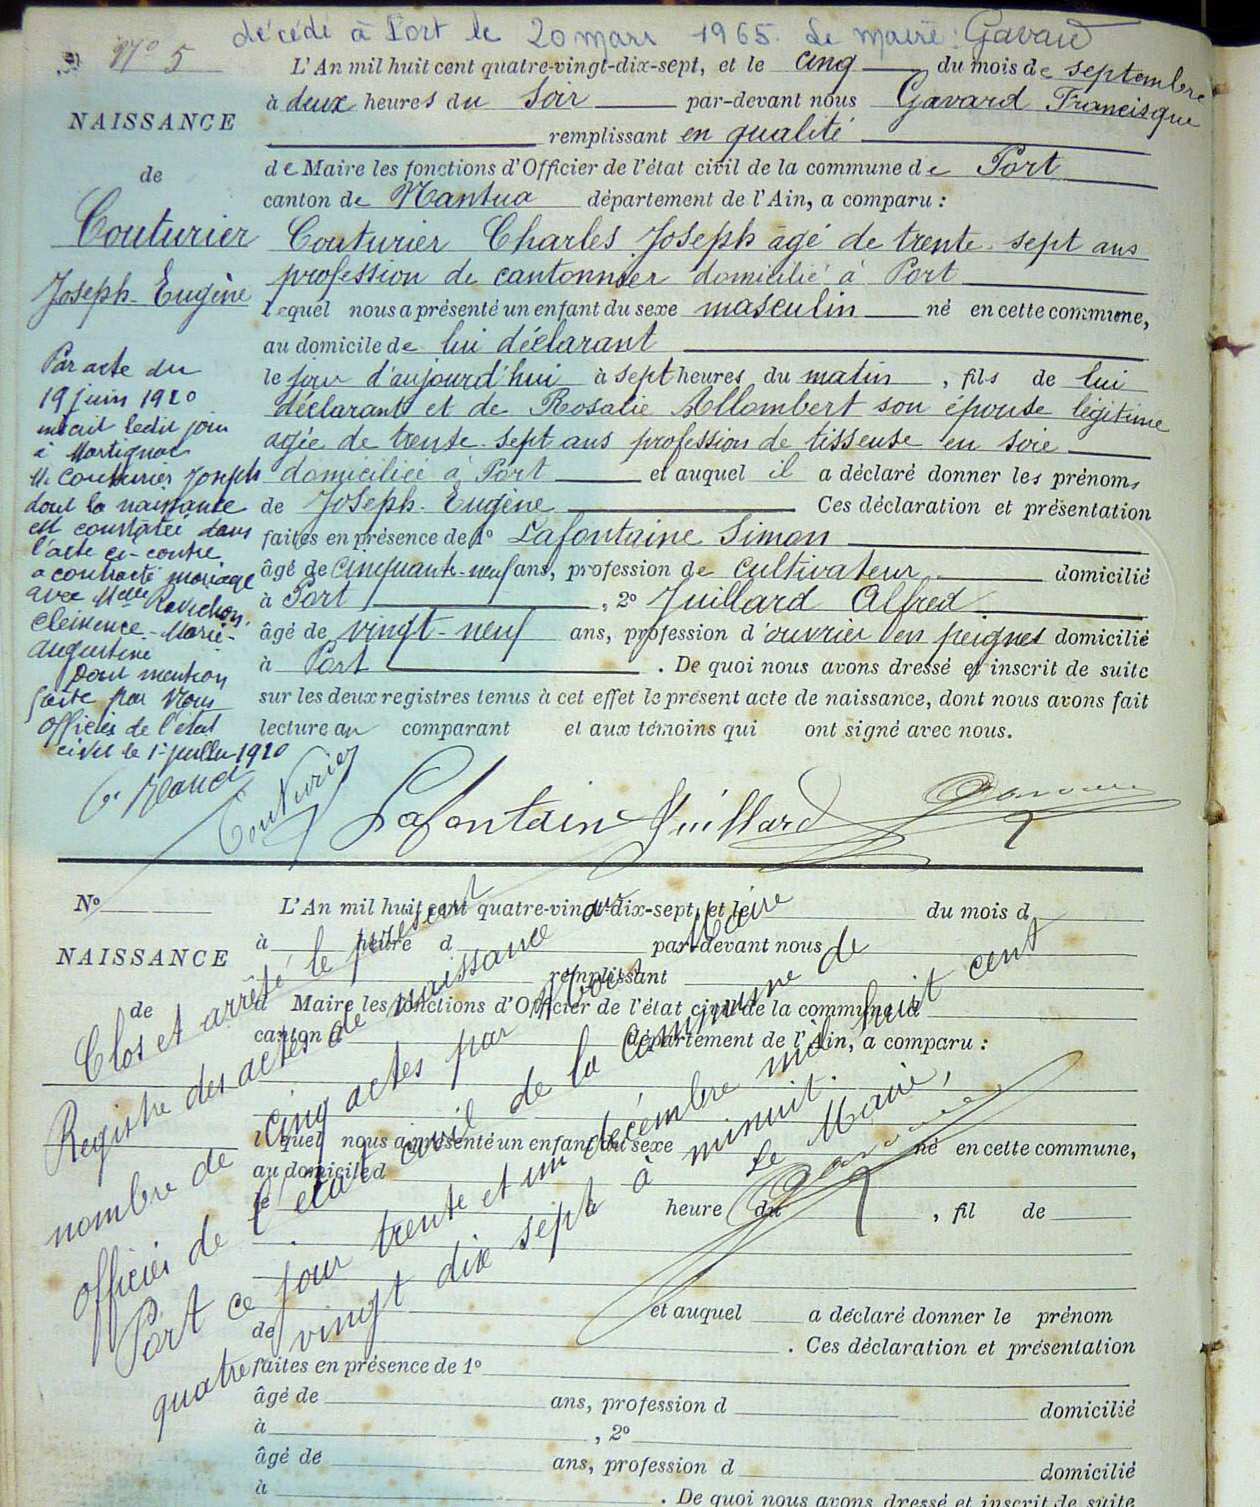 décédé à Port le 20 mars 1965. Le maire: Gavard
N° 5
L'An mil huit cent quatre-vingt-dix-sept, et le cinq du mois de septembre
à deux heures du soir par-devant nous Gavard Francisque
remplissant en qualité
de Maire les fonctions d'Officier de l'état civil de la commune de Port
canton de Nantua département de l'Ain, a comparu :
Couturier Charles Joseph agé de trente-sept ans
profession de cantonnier domicilié à Port
lequel nous a présenté un enfant du sexe masculin né en cette commune,
au domicile de lui déclarant
le jour d'aujourd'hui à sept heures du matin, fils de lui
déclarant et de Rosalie Allombert son épouse légitime
agée de trente-sept ans profession de tisseuse en soie
domiciliée à Port et auquel il a déclaré donner les prénoms
de Joseph-Eugène Ces déclaration et présentation
faites en présence de 1° Lafontaine Simon
âgé de cinquante-neuf ans, profession de cultivateur domicilié
à Port, 2° Juillard Alfred
âgé de vingt-neuf ans, profession d'ouvrier en peignes domicilié
à Port. De quoi nous avons dressé et inscrit de suite
sur les deux registres tenus à cet effet le présent acte de naissance, dont nous avons fait
lecture au comparant et aux témoins qui ont signé avec nous.
NAISSANCE
de
Couturier
Joseph-Eugène
Par acte du
19 juin 1920
inscrit ledit jour
à Martignat
M. Couturier Joseph
dont la naissance
est constatée dans
l'acte ci-contre
a contracté mariage
avec Melle
Clémence-Marie-
Augustine
Dont mention
faite par Nous
Officier de l'état
civil le 1er juillet 1920
Couturier Lafontaine Juillard Gavard
N°
NAISSANCE
de
L'An mil huit cent quatre-vingt-dix-sept, et le du mois d
à heure d par-devant nous
remplissant
d Maire les fonctions d'Officier de l'état civil de la commune d
canton d département de l'Ain, a comparu :
lequel nous a présenté un enfant du sexe né en cette commune,
au domicile d
le heure du , fil de
et auquel a déclaré donner le prénom
de . Ces déclaration et présentation
faites en présence de 1°
âgé de ans, profession d domicilié
à , 2°
âgé de ans, profession d domicilié
à . De quoi nous avons dressé et inscrit de suite
Clos et arrêté le présent
Registre des actes de naissance au
nombre de cinq actes par Nous Maire
officier de l'état civil de la commune de
Port ce jour trente et un décembre mil huit cent
quatre vingt dix sept à minuit.
Le Maire,
Gavard